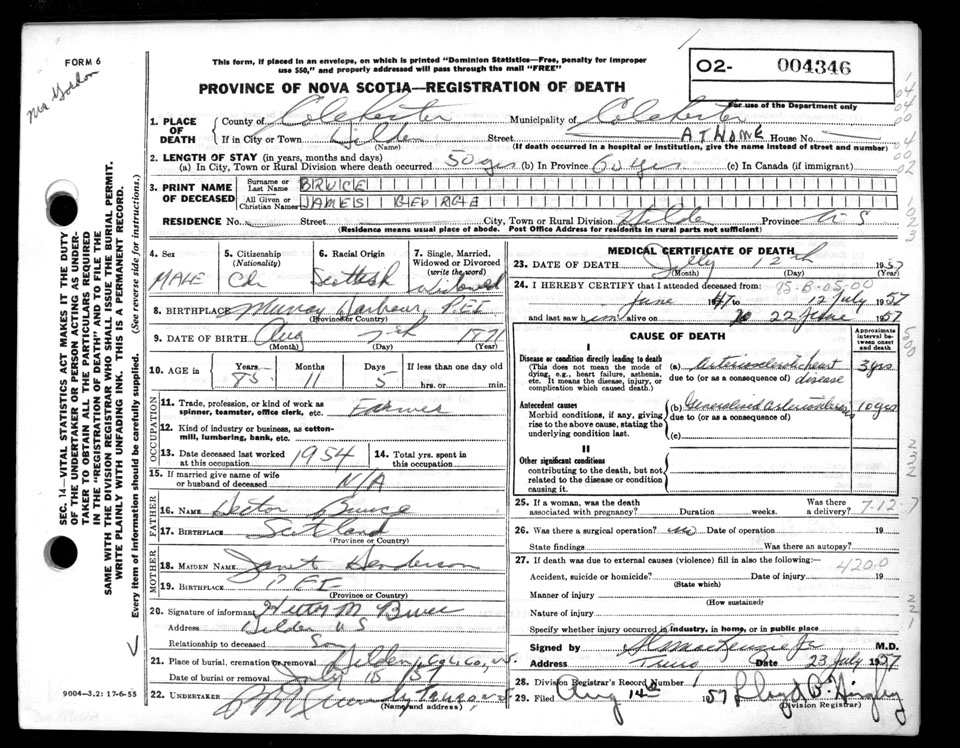 FORM 6
Mrs Gordon
This form, if placed in an envelope, on which is printed "Dominion Statistics—Free, penalty for improper
use $50," and properly addressed will pass through the mail "FREE"
O2- 004346
For use of the Department only
PROVINCE OF NOVA SCOTIA—REGISTRATION OF DEATH
1. PLACE OF DEATH
County of Colchester Municipality of Colchester
If in City or Town Hilden Street AT HOME House No.
(Name) (If death occurred in a hospital or institution, give the name instead of street and number)
2. LENGTH OF STAY (in years, months and days)
(a) In City, Town or Rural Division where death occurred 50 yrs (b) In Province 60 yrs (c) In Canada (if immigrant)
3. PRINT NAME OF DECEASED
Surname or Last Name BRUCE
All Given or Christian Names JAMES GEORGE
RESIDENCE No. Street City, Town or Rural Division Hilden Province N S
(Residence means usual place of abode. Post Office Address for residents in rural parts not sufficient)
4. Sex
MALE
5. Citizenship
(Nationality)
Cdn
6. Racial Origin
Scottish
7. Single, Married,
Widowed or Divorced
(write the word)
Widowed
8. BIRTHPLACE Murray Harbour, P.E.I
(Province or Country)
9. DATE OF BIRTH Aug 7th 1871
(Month) (Day) (Year)
10. AGE in Years Months Days If less than one day old
85 11 5 hrs. or min.
OCCUPATION
11. Trade, profession, or kind of work as
spinner, teamster, office clerk, etc. Farmer
12. Kind of industry or business, as cotton-
mill, lumbering, bank, etc.
13. Date deceased last worked
at this occupation 1954
14. Total yrs. spent in
this occupation
15. If married give name of wife
or husband of deceased N/A
FATHER
16. NAME Hector Bruce
17. BIRTHPLACE Scotland
(Province or Country)
MOTHER
18. MAIDEN NAME Janet Henderson
19. BIRTHPLACE P E I
(Province or Country)
20. Signature of informant Hector M Bruce
Address Hilden N S
Relationship to deceased Son
21. Place of burial, cremation or removal Hilden, Col. Co., N.S.
Date of burial or removal July 15 1957
22. UNDERTAKER
(Name and address)
MEDICAL CERTIFICATE OF DEATH
23. DATE OF DEATH July 12th 1957
(Month) (Day) (Year)
24. I HEREBY CERTIFY that I attended deceased from:
95-B-05-00
June to 12 July 1957
and last saw him alive on 22 June 1957
CAUSE OF DEATH
Approximate
interval be-
tween onset
and death
I
Disease or condition directly leading to death
(This does not mean the mode of
dying, e.g., heart failure, asthenia,
etc. It means the disease, injury, or
complication which caused death.)
(a) Arteriosclerotic heart disease 3 yrs
due to (or as a consequence of)
Antecedent causes
Morbid conditions, if any, giving
rise to the above cause, stating the
underlying condition last.
(b) Generalized arteriosclerosis 10 yrs
due to (or as a consequence of)
(c)
II
Other significant conditions
contributing to the death, but not
related to the disease or condition
causing it.
25. If a woman, was the death
associated with pregnancy? Duration weeks. Was there
a delivery?
7-12-7
26. Was there a surgical operation? no Date of operation 19
State findings Was there an autopsy?
27. If death was due to external causes (violence) fill in also the following:—
420.0
Accident, suicide or homicide? Date of injury 19
(State which)
Manner of injury
(How sustained)
Nature of injury
Specify whether injury occurred in industry, in home, or in public place
Signed by MacKenzie Jr M.D.
Address Truro Date 23 July 1957
28. Division Registrar's Record Number 1
29. Filed Aug 14th 1957
(Division Registrar)
SEC. 14—VITAL STATISTICS ACT MAKES IT THE DUTY
OF THE UNDERTAKER OR PERSON ACTING AS UNDER-
TAKER TO OBTAIN ALL THE PARTICULARS REQUIRED
IN THE "REGISTRATION OF DEATH" AND TO FILE THE
SAME WITH THE DIVISION REGISTRAR WHO SHALL ISSUE THE BURIAL PERMIT.
WRITE PLAINLY WITH UNFADING INK. THIS IS A PERMANENT RECORD.
Every item of information should be carefully supplied. (See reverse side for instructions.)
9004-3.2: 17-6-55